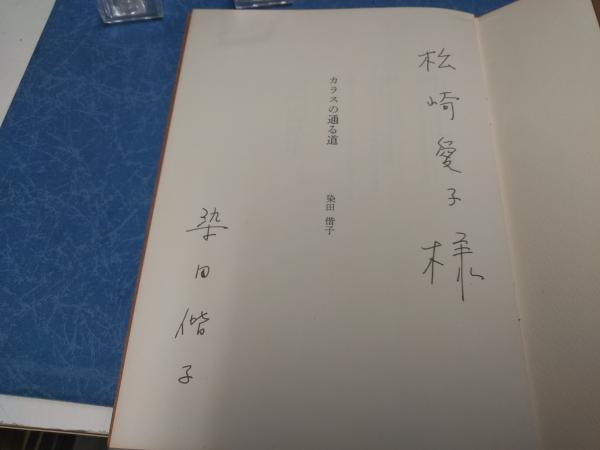 松崎愛子様
カラスの通る道
染田 偕子
染田偕子